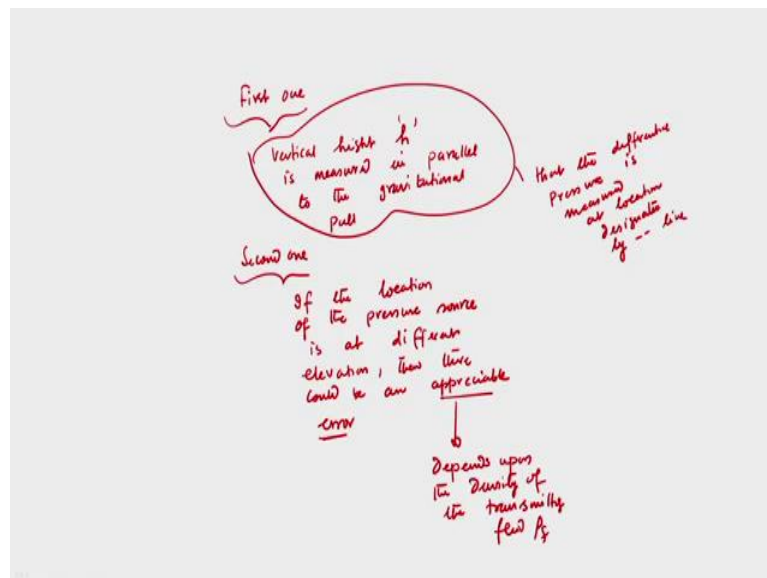 First one
Vertical height 'h'
is measured in parallel
to the gravitational
pull
that the differential
pressure is
measured
at location
designated
by -- line
Second one
If the location
of the pressure source
is at different
elevation, then there
could be an appreciable
error
Depends upon
the Density of
the transmitting
fluid ρf